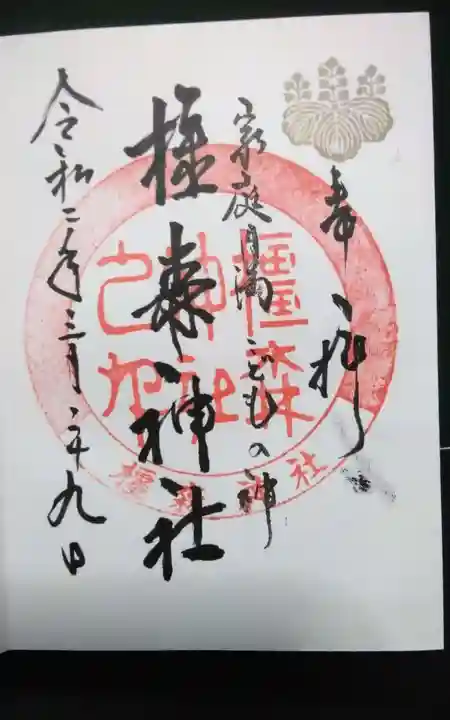 奉拝
家庭円満こどもの神
橿森神社
令和二年三月二十九日
橿森
神社
橿森神社